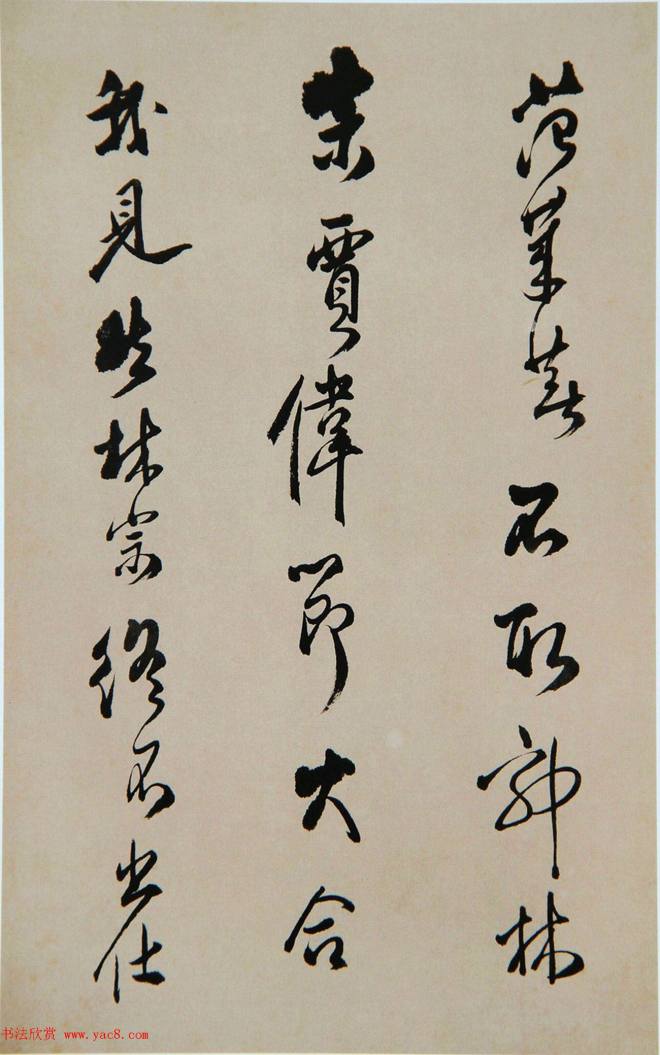 范不取郭林
宗賈偉節大合
我見然林宗終不出仕
书法欣赏 www.yac8.com